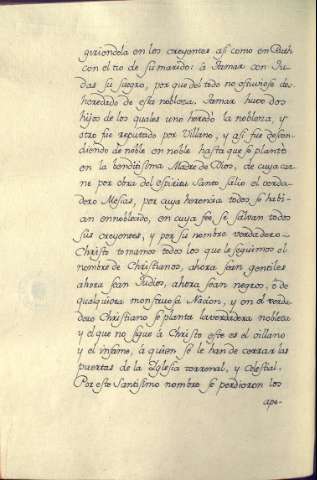 giriendola en los creyentes asi como en Ruth
con el tio de su marido: â Jamar con Ju-
das su suegro, por que del todo no estuviese des-
heredado de esta nobleza. Jamar huvo dos
hijos de los quales uno heredo la nobleza, y
otro fue reputado por Villano, y asi fue descen-
diendo de noble en noble hasta que se planto
en la benditisima Madre de Dios, de cuya car-
ne por obra del espiritu Santo salio el verda-
dero Mesias, por cuya herencia todos se habi-
an ennoblecido, en cuya feé, se salvan todos
sus creyentes, y por su nombre verdadero
Christo tomamos todos los que le seguimos el
nombre de Christianos, ahora sean gentiles
ahora sean Judios, ahora sean negros, ô de
qualquiera monstruosa Nacion, y en el verda-
dero Christiano se planta la verdadera nobleza
y el que no sigue â Christo este es el villano
y el infame, â quien se le han de cerrar las
puertas de la Yglesia terrenal, y Celestial.
Por este Santisimo nombre se perdieron los
apo-